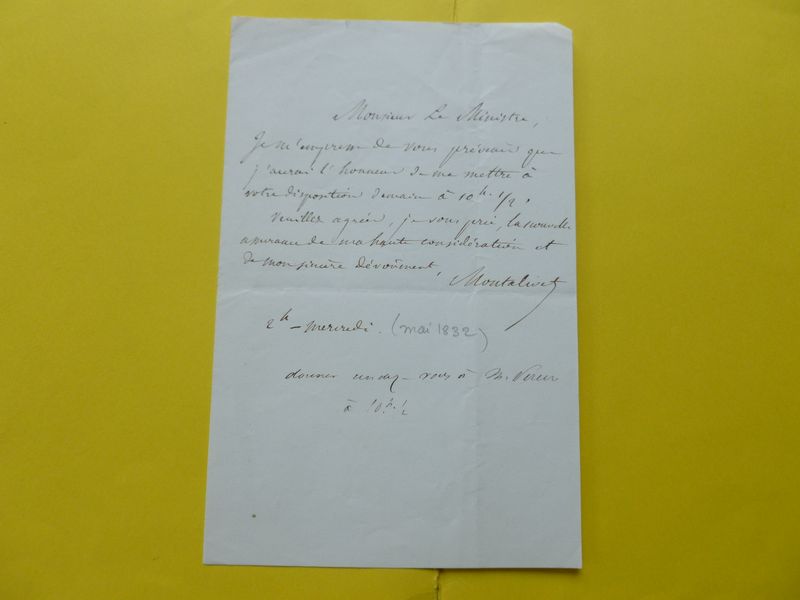 Monsieur Le Ministre,
Je m'empresse de vous prévenir que
j'aurai l'honneur de me mettre à
votre disposition demain à 10h. 1/2.
Veuillez agréer, je vous prie, la nouvelle
assurance de ma haute considération et
de mon sincère dévouement,
Montalivet
2h – mercredi. (mai 1832)
donner rendez-vous à M.
à 10h. 1/2